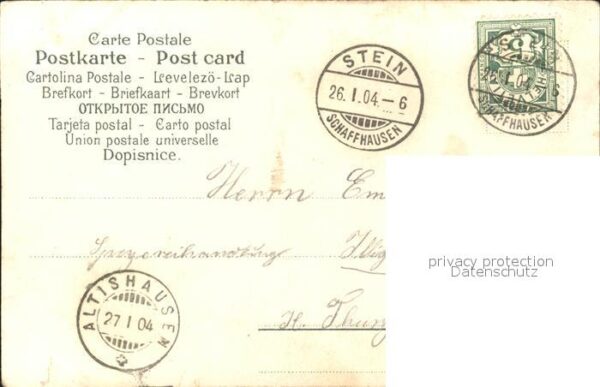 Carte Postale
Postkarte - Post card
Cartolina Postale - Levelező-Lap
Brefkort - Briefkaart - Brevkort
ОТКРЫТОЕ ПИСЬМО
Tarjeta postal - Carto postal
Union postale universelle
Dopisnice.
STEIN
26. I. 04.–6
SCHAFFHAUSEN
STEIN
26. I. 04.–6
SCHAFFHAUSEN
Herrn Em
Spezereihandlung Illig
Kt. Thurg
privacy protection
Datenschutz
ALTISHAUSEN
27 I 04